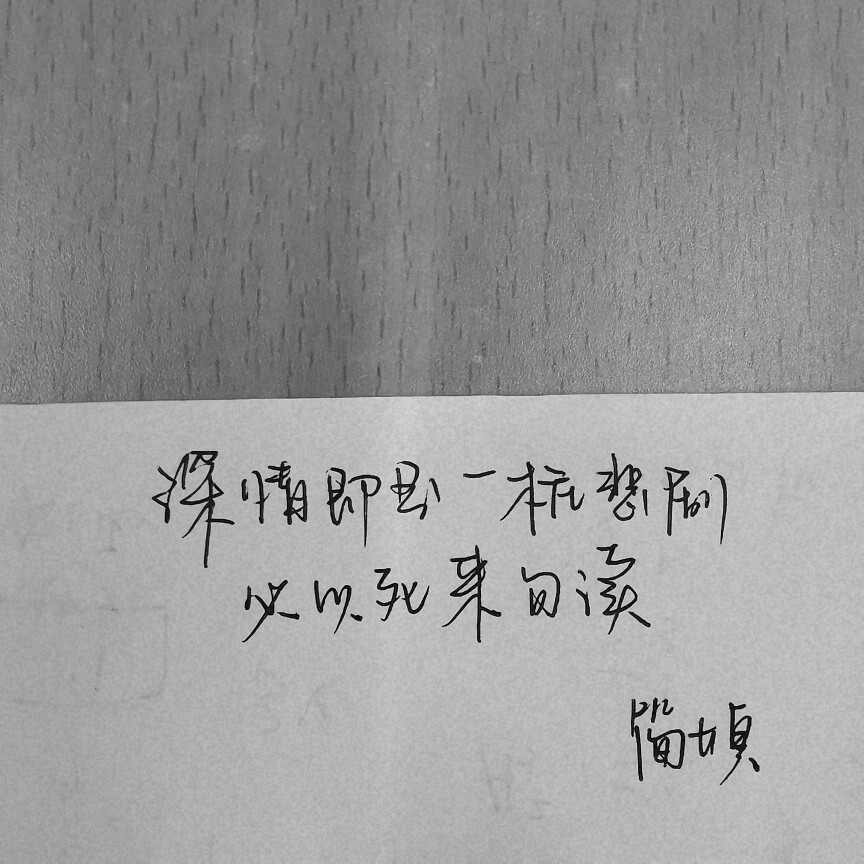 深情即是一桩悲剧
必以死来句读
简媜